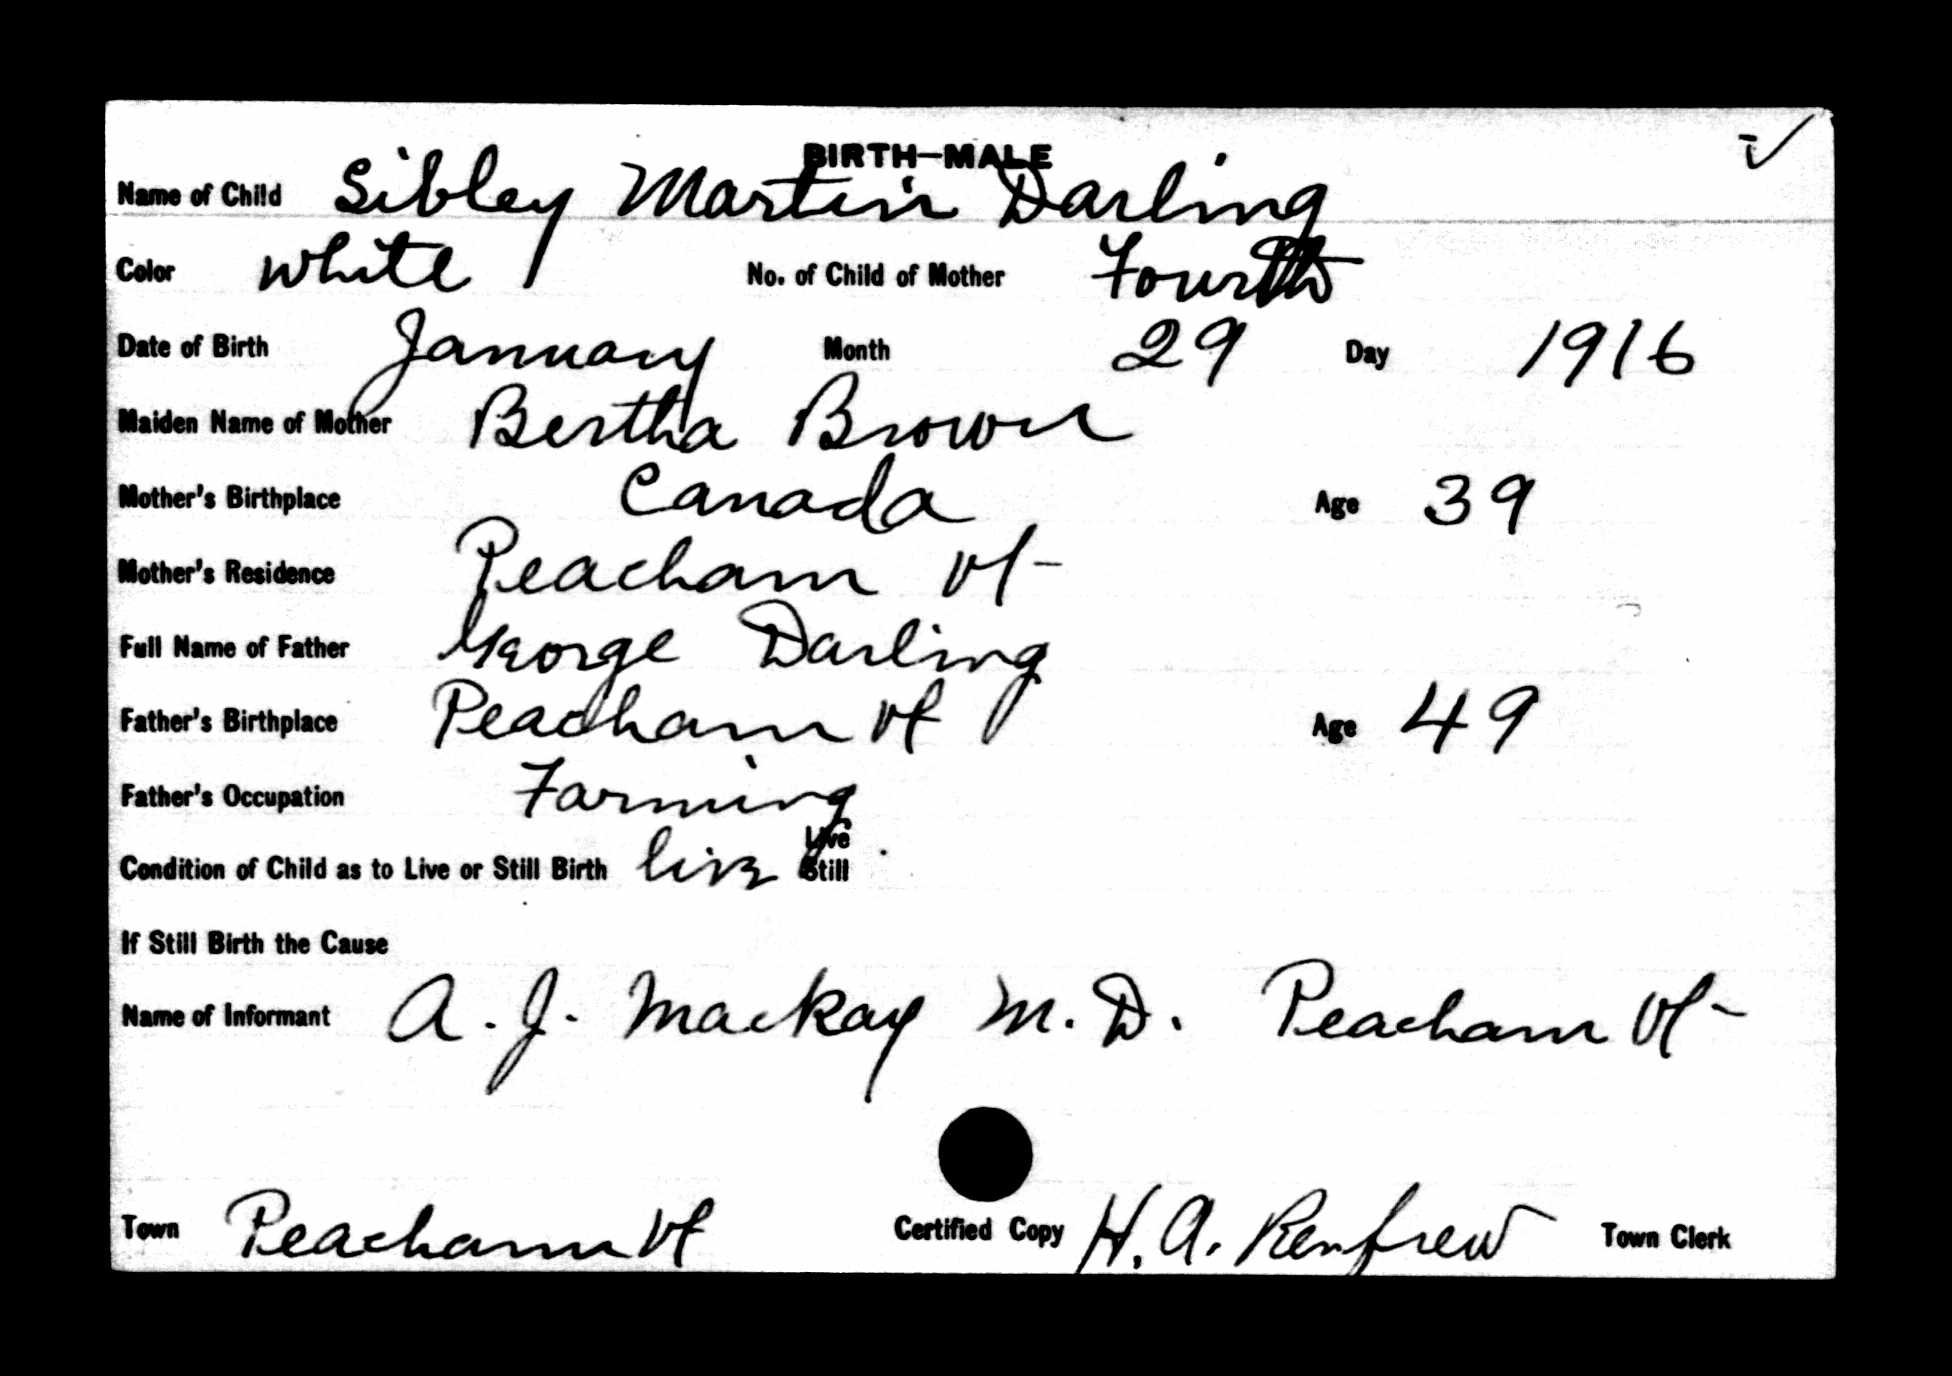 BIRTH—MALE
Name of Child Sibley Martin Darling
Color White No. of Child of Mother Fourth
Date of Birth January Month 29 Day 1916
Maiden Name of Mother Bertha Brown
Mother's Birthplace Canada Age 39
Mother's Residence Peacham Vt-
Full Name of Father George Darling
Father's Birthplace Peacham Vt Age 49
Father's Occupation Farming
Live
Condition of Child as to Live or Still Birth live Still
If Still Birth the Cause
Name of Informant A. J. Mackay M. D. Peacham Vt-
Town Peacham Vt Certified Copy H. A. Renfrew Town Clerk